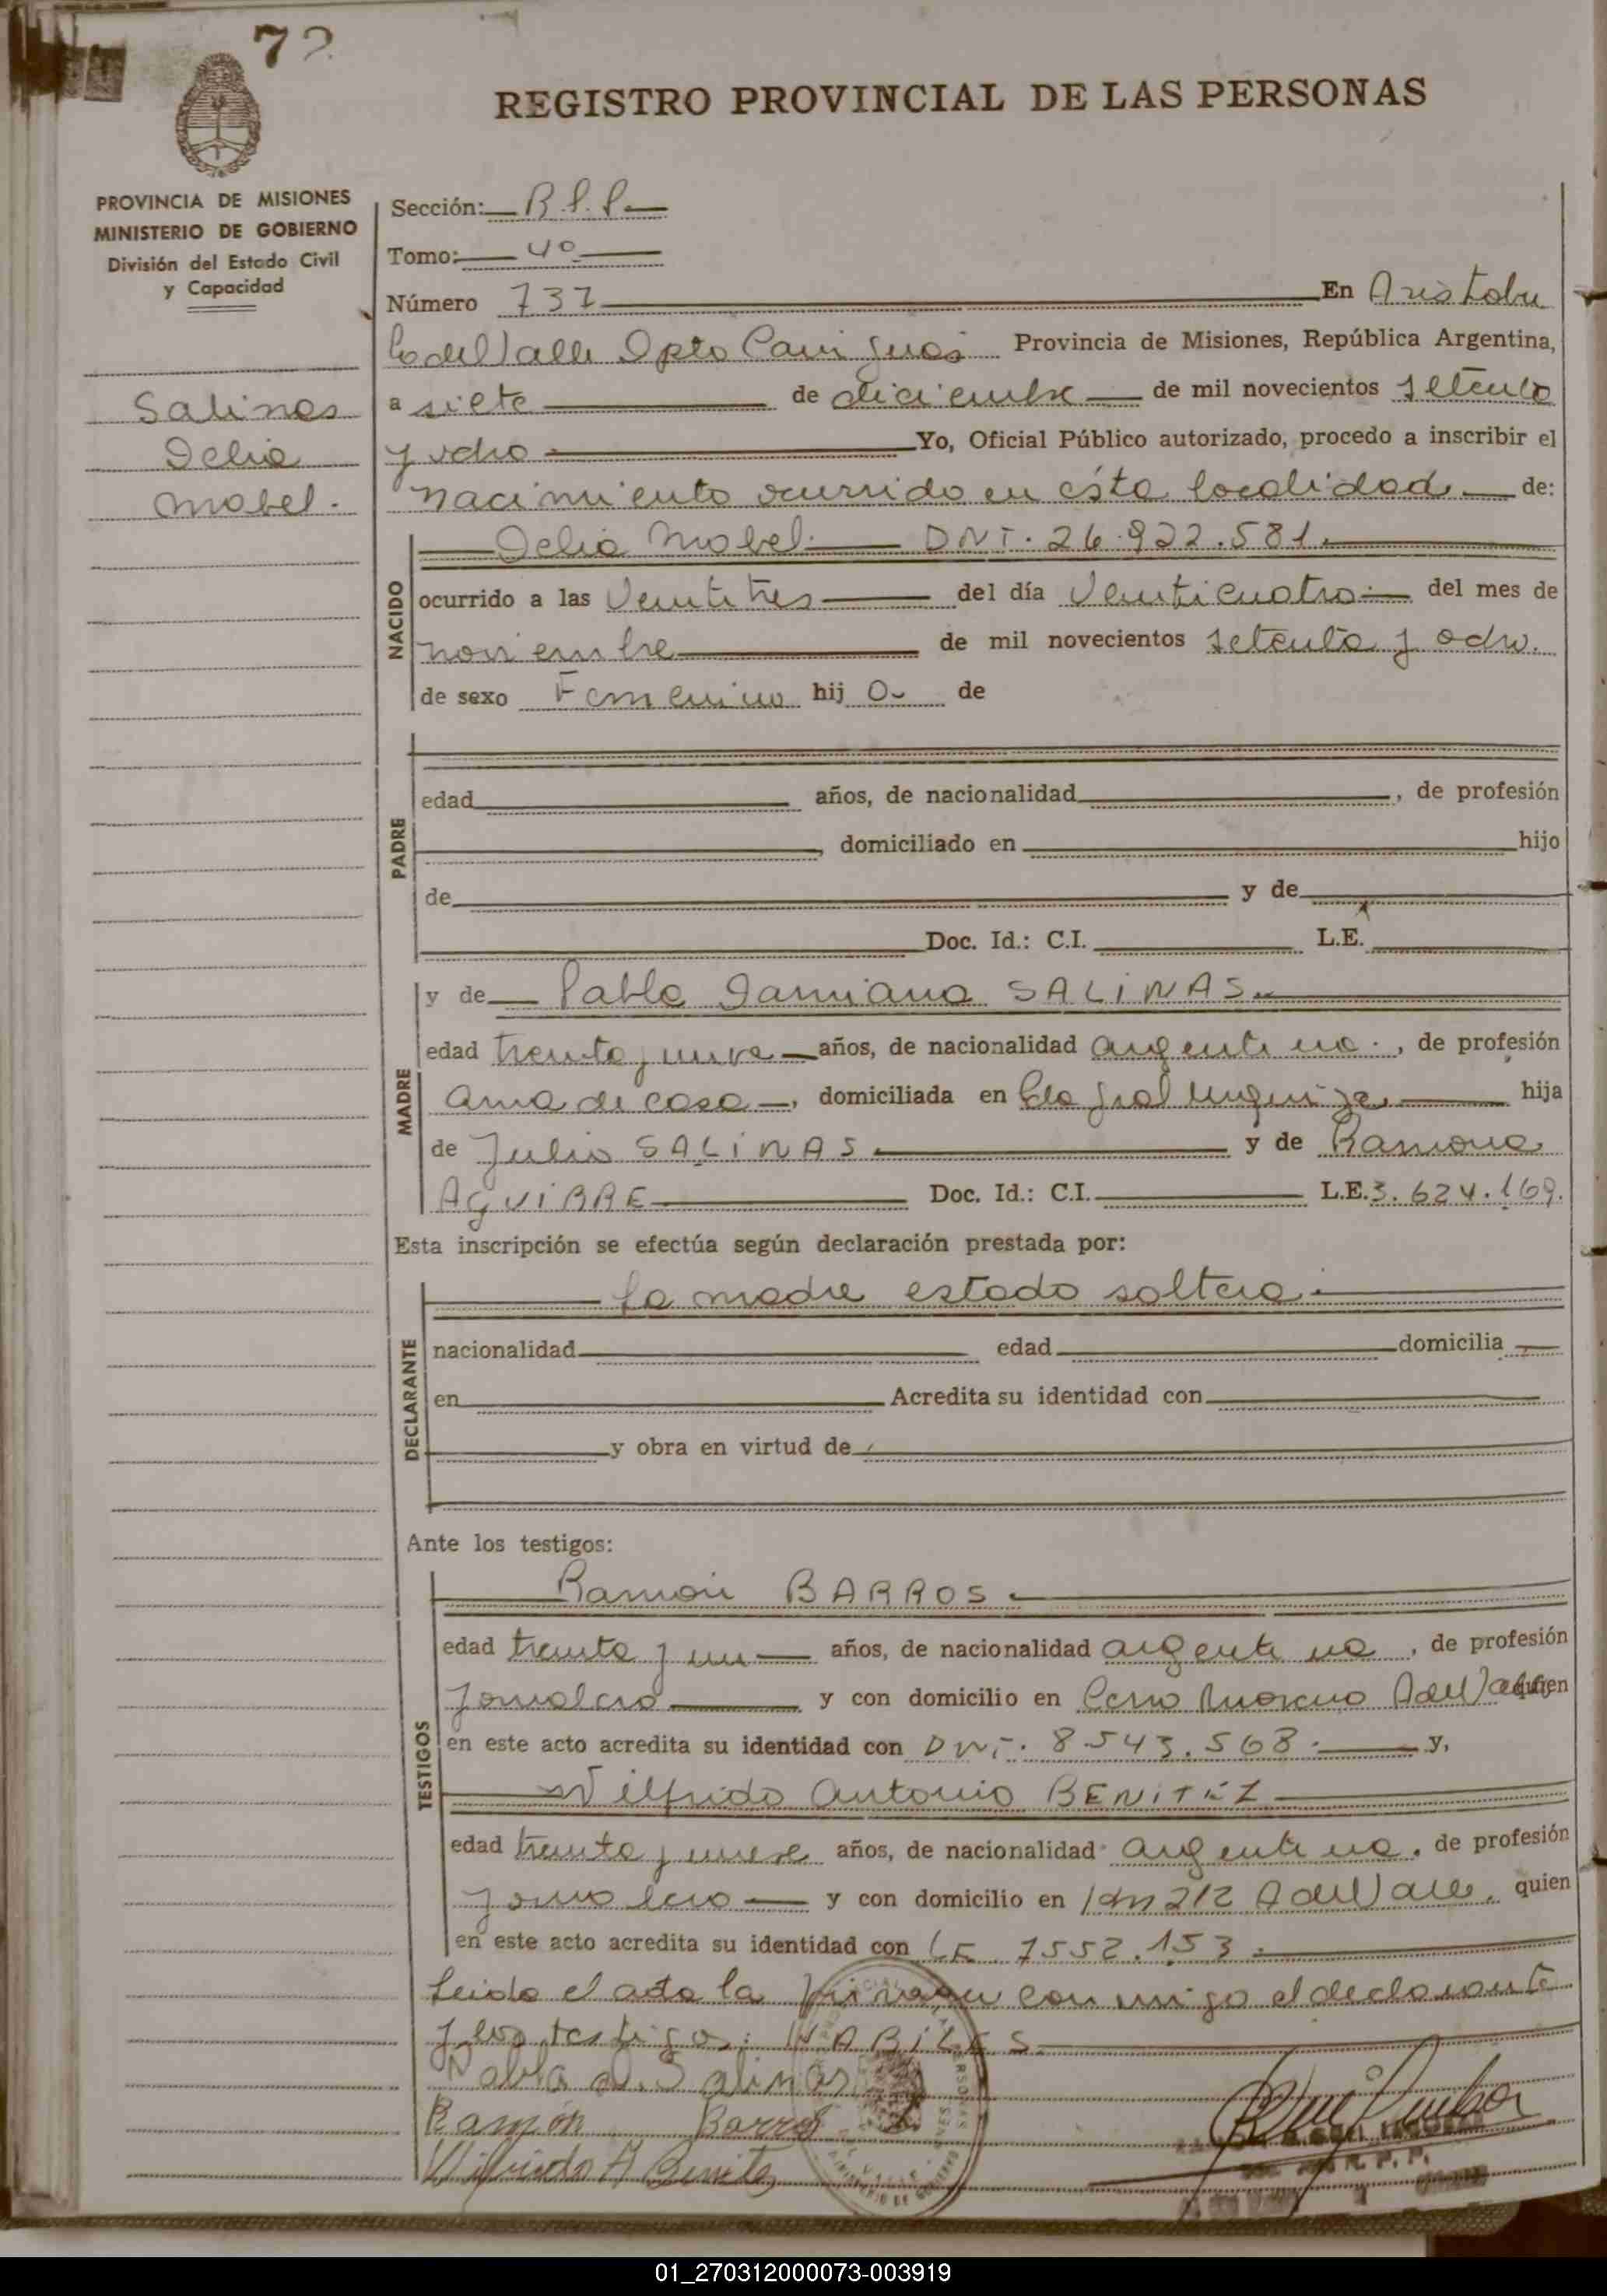 72
REGISTRO PROVINCIAL DE LAS PERSONAS
PROVINCIA DE MISIONES
MINISTERIO DE GOBIERNO
División del Estado Civil
y Capacidad
Salinas
Delia
Mabel.
Sección: R.P.P.
Tomo: 4º
Número 737 En Aristobu
lo del Valle Dpto Cainguas Provincia de Misiones, República Argentina,
a siete de diciembre de mil novecientos setenta
y ocho Yo, Oficial Público autorizado, procedo a inscribir el
nacimiento ocurrido en ésta localidad de:
NACIDO
Delia Mabel. DNI. 26.922.581.
ocurrido a las Veintitres del día Veinticuatro del mes de
noviembre de mil novecientos setenta y ocho.
de sexo Femenino hij a de
PADRE
edad años, de nacionalidad , de profesión
, domiciliado en hijo
de y de
Doc. Id.: C.I. L.E.
MADRE
y de Pabla Damiana SALINAS.
edad treinta y nueve años, de nacionalidad argentina., de profesión
ama de casa, domiciliada en Cla Gral Urquiza, hija
de Julio SALINAS y de Ramona
AGUIRRE Doc. Id.: C.I. L.E. 3.624.169.
Esta inscripción se efectúa según declaración prestada por:
DECLARANTE
La madre estado soltera.
nacionalidad edad domicilia
en Acredita su identidad con
y obra en virtud de
Ante los testigos:
TESTIGOS
Ramón BARROS.
edad treinta y un años, de nacionalidad argentina, de profesión
Jornalero y con domicilio en Cerro Moreno AdelValle quien
en este acto acredita su identidad con DNI. 8.543.568. y,
Wilfrido Antonio BENITEZ
edad treinta y nueve años, de nacionalidad argentina, de profesión
Jornalero y con domicilio en km 212 AdelValle, quien
en este acto acredita su identidad con LE 7552.153.
Leída el acta la firman conmigo el declarante
y los testigos: HABILES.
Pabla D. Salinas
Ramón Barros
Wilfrido A Benitez
01_270312000073-003919